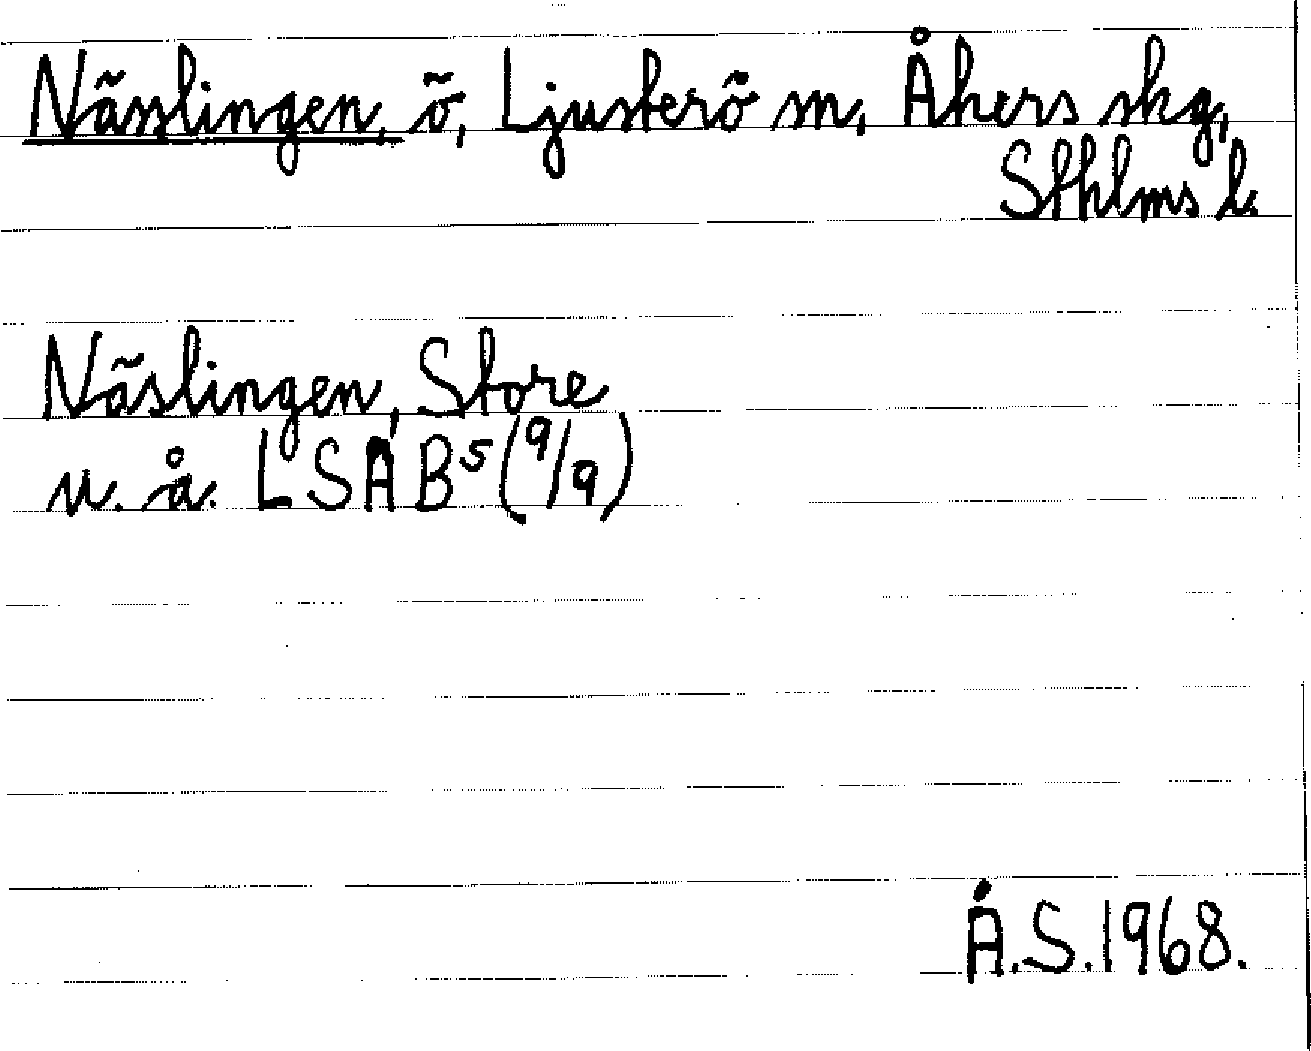 Nässlingen, ö, Ljusterö sn, Åkers skg,
Sthlms l.
Näslingen, Store
u. å. LSA B⁵ (9/9)
Å.S. 1968.